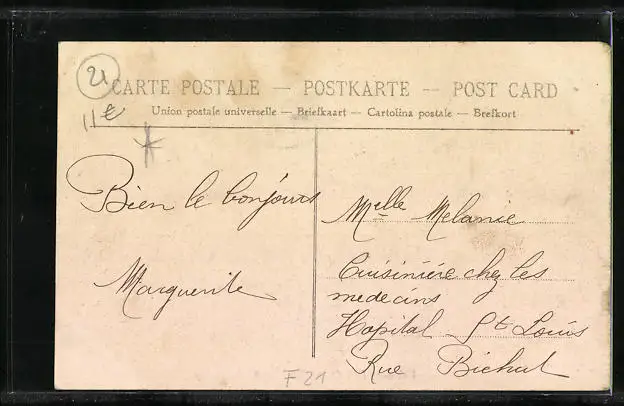 21
CARTE POSTALE — POSTKARTE — POST CARD
Union postale universelle — Briefkaart — Cartolina postale — Brefkort
11€
Bien le bonjours
Marguerite
Melle Melanie
Cuisinière chez les
medecins
Hopital St Louis
Rue Bichat
F21